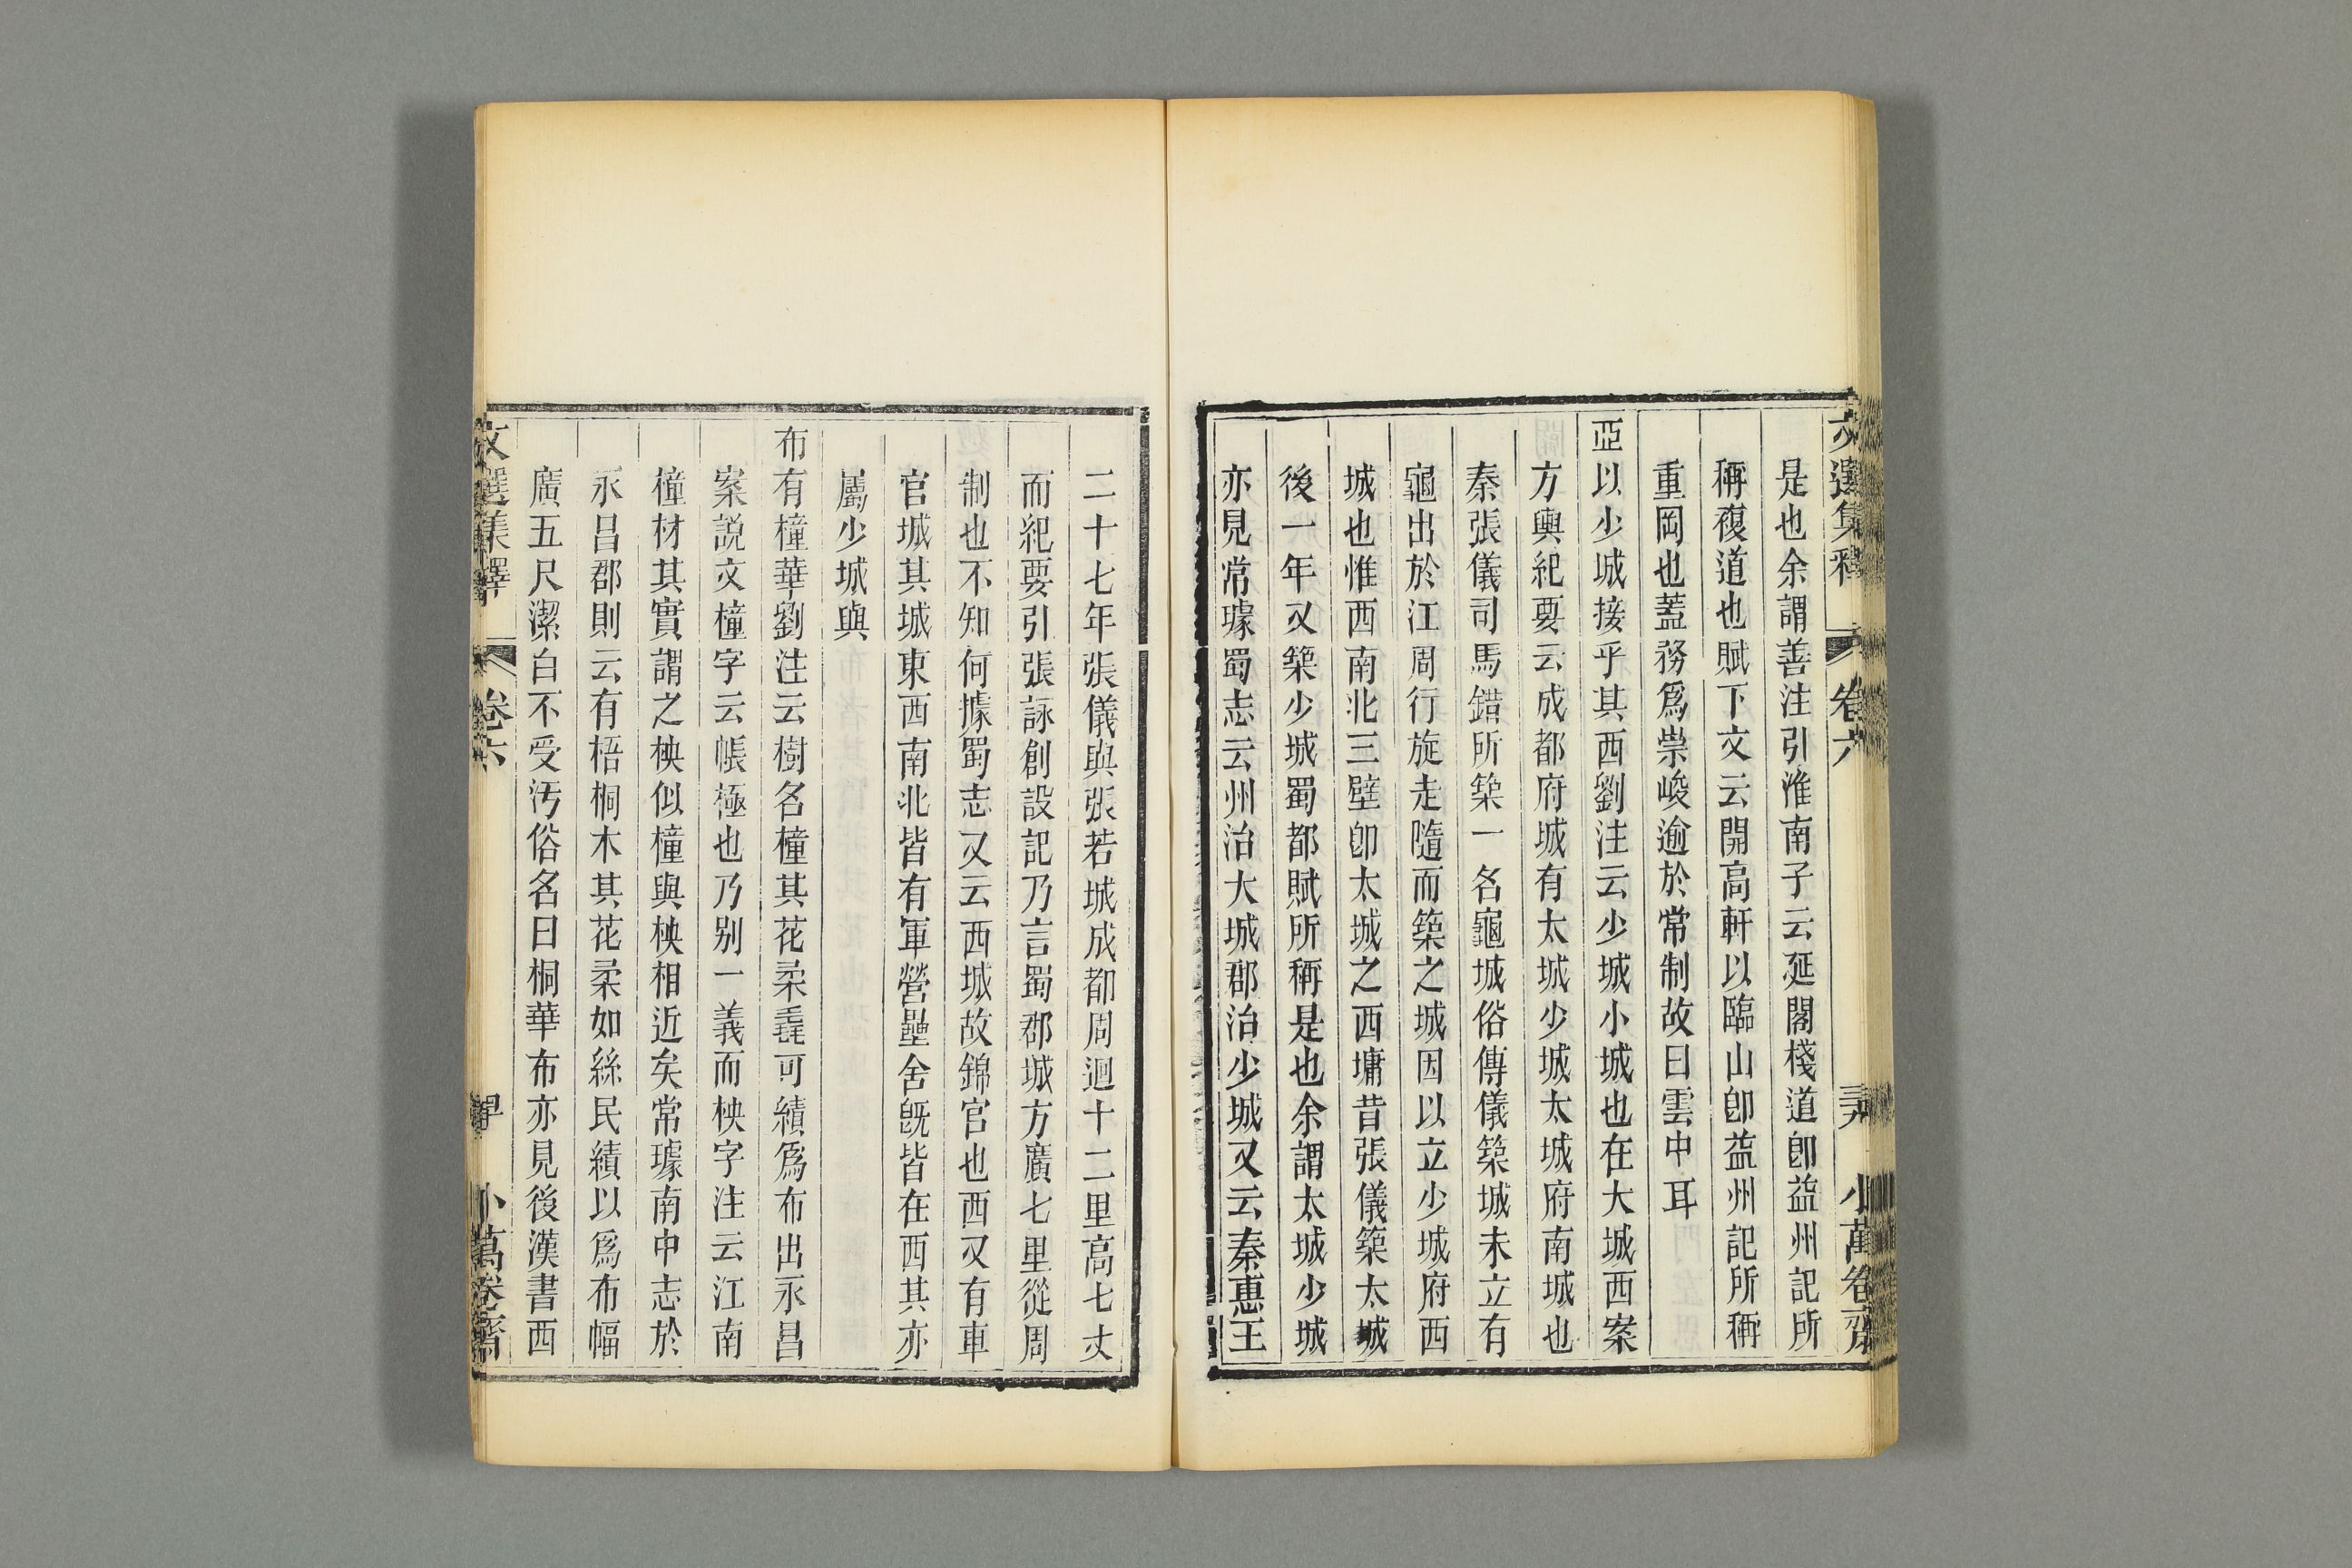 文選集釋 卷六 小萬卷齋
是也余謂善注引淮南子云延閣棧道卽益州記所
稱複道也賦下文云開高軒以臨山卽益州記所稱
重岡也蓋務爲崇峻逾於常制故曰雲中耳
亞以少城接乎其西劉注云少城小城也在大城西案
方輿紀要云成都府城有太城少城太城府南城也
秦張儀司馬錯所築一名龜城俗傳儀築城未立有
龜出於江周行旋走隨而築之城因以立少城府西
城也惟西南北三壁卽太城之西墉昔張儀築太城
後一年又築少城蜀都賦所稱是也余謂太城少城
亦見常璩蜀志云州治大城郡治少城又云秦惠王
二十七年張儀與張若城成都周迴十二里高七丈
而紀要引張詠創設記乃言蜀郡城方廣七里從周
制也不知何據蜀志又云西城故錦官也西又有車
官城其城東西南北皆有軍營壘舍旣皆在西其亦
屬少城與
布有橦華劉注云樹名橦其花柔毳可績爲布出永昌
案說文橦字云帳極也乃別一義而柍字注云江南
橦材其實謂之柍似橦與柍相近矣常璩南中志於
永昌郡則云有梧桐木其花柔如絲民績以爲布幅
廣五尺潔白不受汚俗名曰桐華布亦見後漢書西
文選集釋 卷六 小萬卷齋